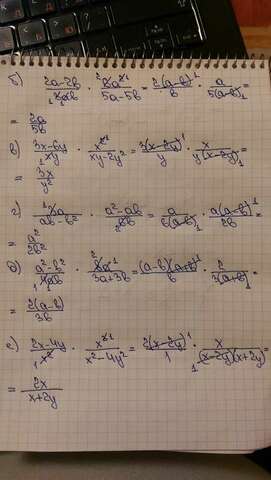 б) (2a-2b)/(8ab) · (8a²)/(5a-5b) = 2(a-b)/b · a/(5(a-b)) =
= 2a/5b
в) (3x-6y)/(xy) · x²/(xy-2y²) = 3(x-2y)/y · x/(y(x-2y)) =
= 3x/y²
г) a/(ab-b²) · (a²-ab)/(2b) = a/(b(a-b)) · a(a-b)/(2b) =
= a²/2b²
д) (a²-b²)/b · /(3a+3b) = (a-b)(a+b)/b · 2/(3(a+b)) =
= 2(a-b)/3b
е) (2x-4y)/x² · x³/(x²-4y²) = 2(x-2y)/1 · x/((x-2y)(x+2y)) =
= 2x/(x+2y)